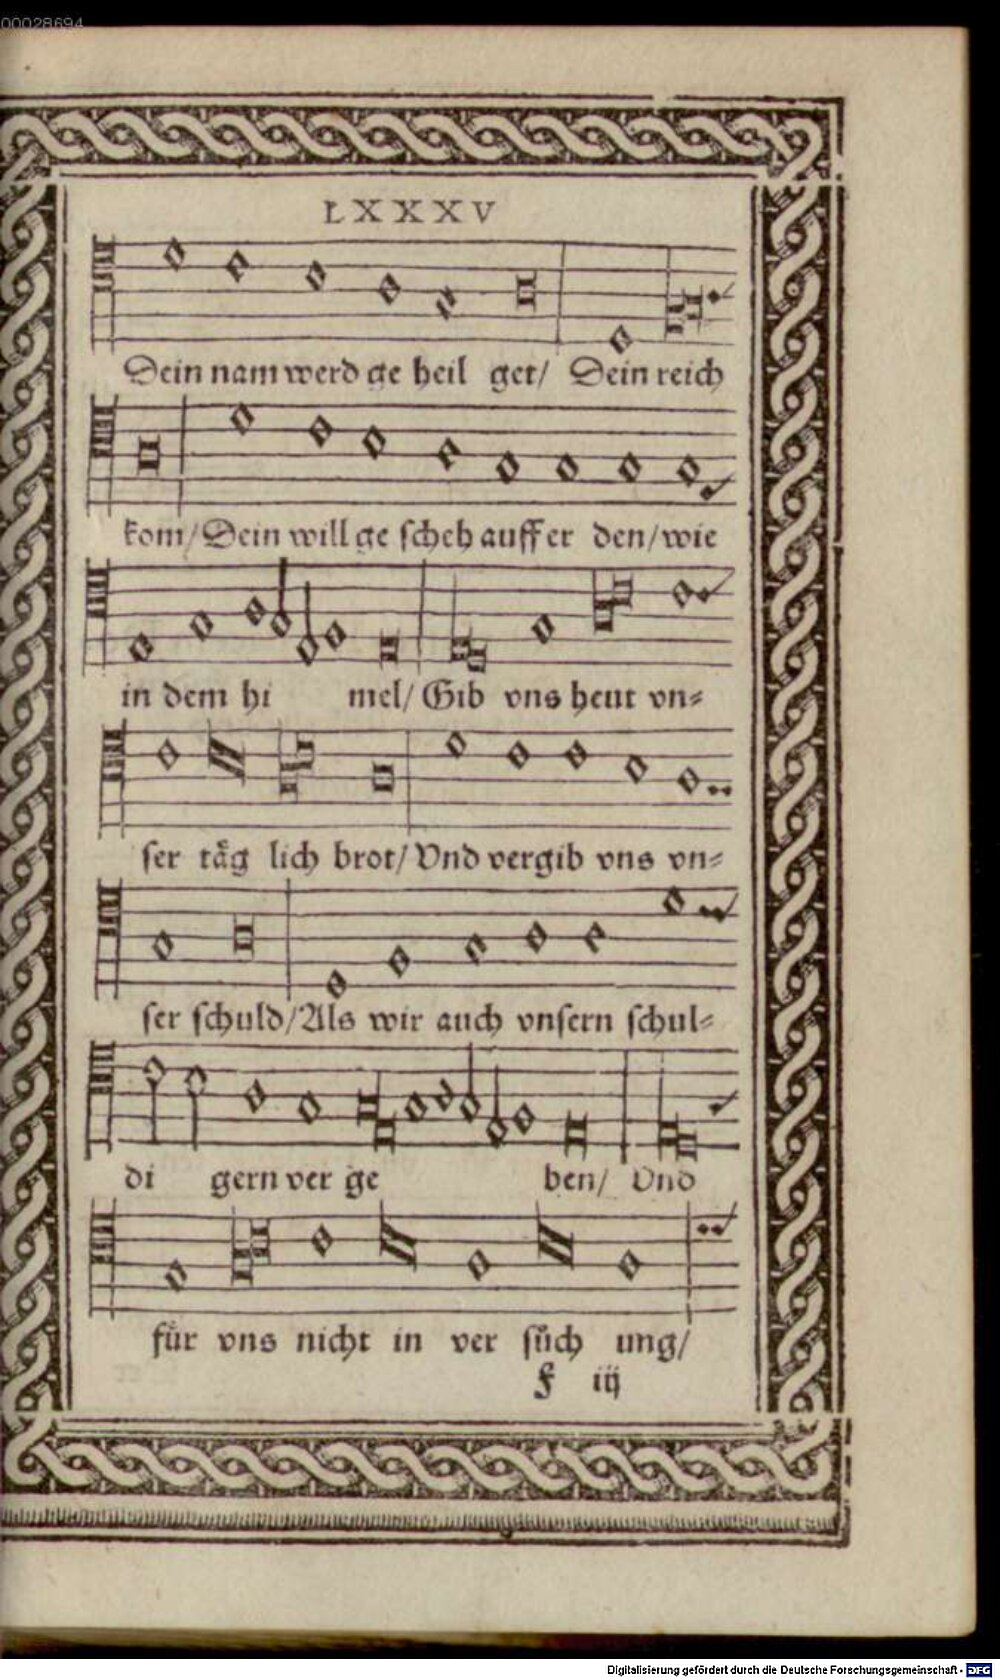 00028694
LXXXV
Dein nam werd ge heil get/ Dein reich
kom/ Dein will ge scheh auff er den/ wie
in dem hi mel/ Gib vns heut vn⸗
ser taͤg lich brot/ Vnd vergib vns vn⸗
ser schuld/ Als wir auch vnsern schul⸗
di gern ver ge ben/ Vnd
fuͤr vns nicht in ver suͦch ung/
F iij
Digitalisierung gefördert durch die Deutsche Forschungsgemeinschaft - DFG